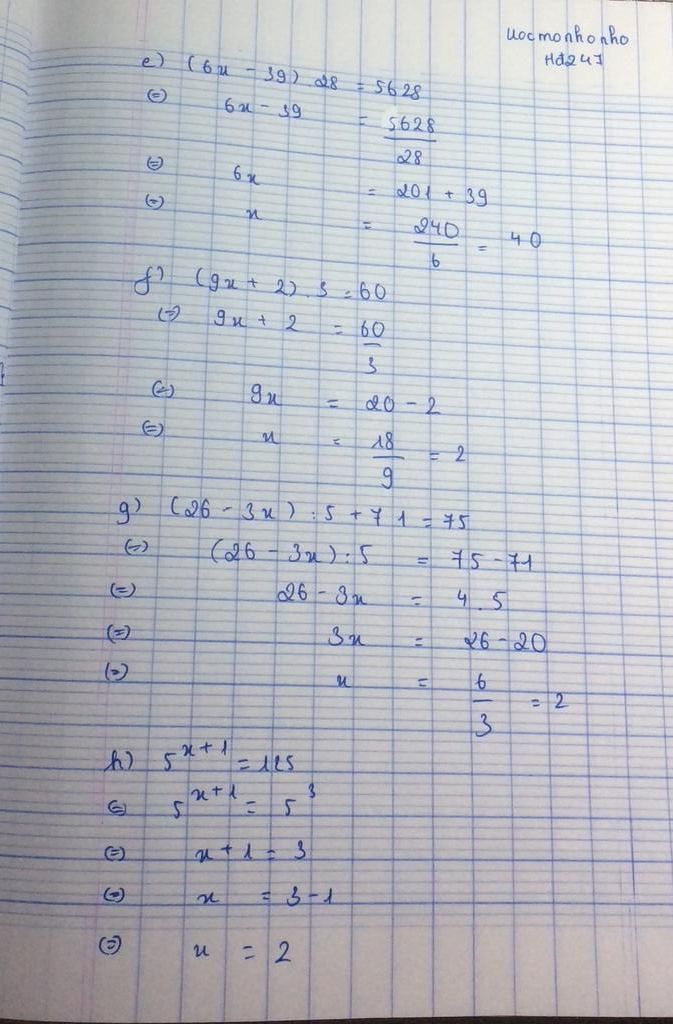 uocmonhonho
Hđ247
e) (6x - 39) . 28 = 5628
(=) 6x - 39 = 5628/28
(=) 6x = 201 + 39
(=) x = 240/6 = 40
f) (9x + 2) . 3 = 60
(=) 9x + 2 = 60/3
(=) 9x = 20 - 2
(=) x = 18/9 = 2
g) (26 - 3x) : 5 + 71 = 75
(=) (26 - 3x) : 5 = 75 - 71
(=) 26 - 3x = 4 . 5
(=) 3x = 26 - 20
(=) x = 6/3 = 2
h) 5^x+1 = 125
(=) 5^x+1 = 5^3
(=) x + 1 = 3
(=) x = 3 - 1
(=) x = 2